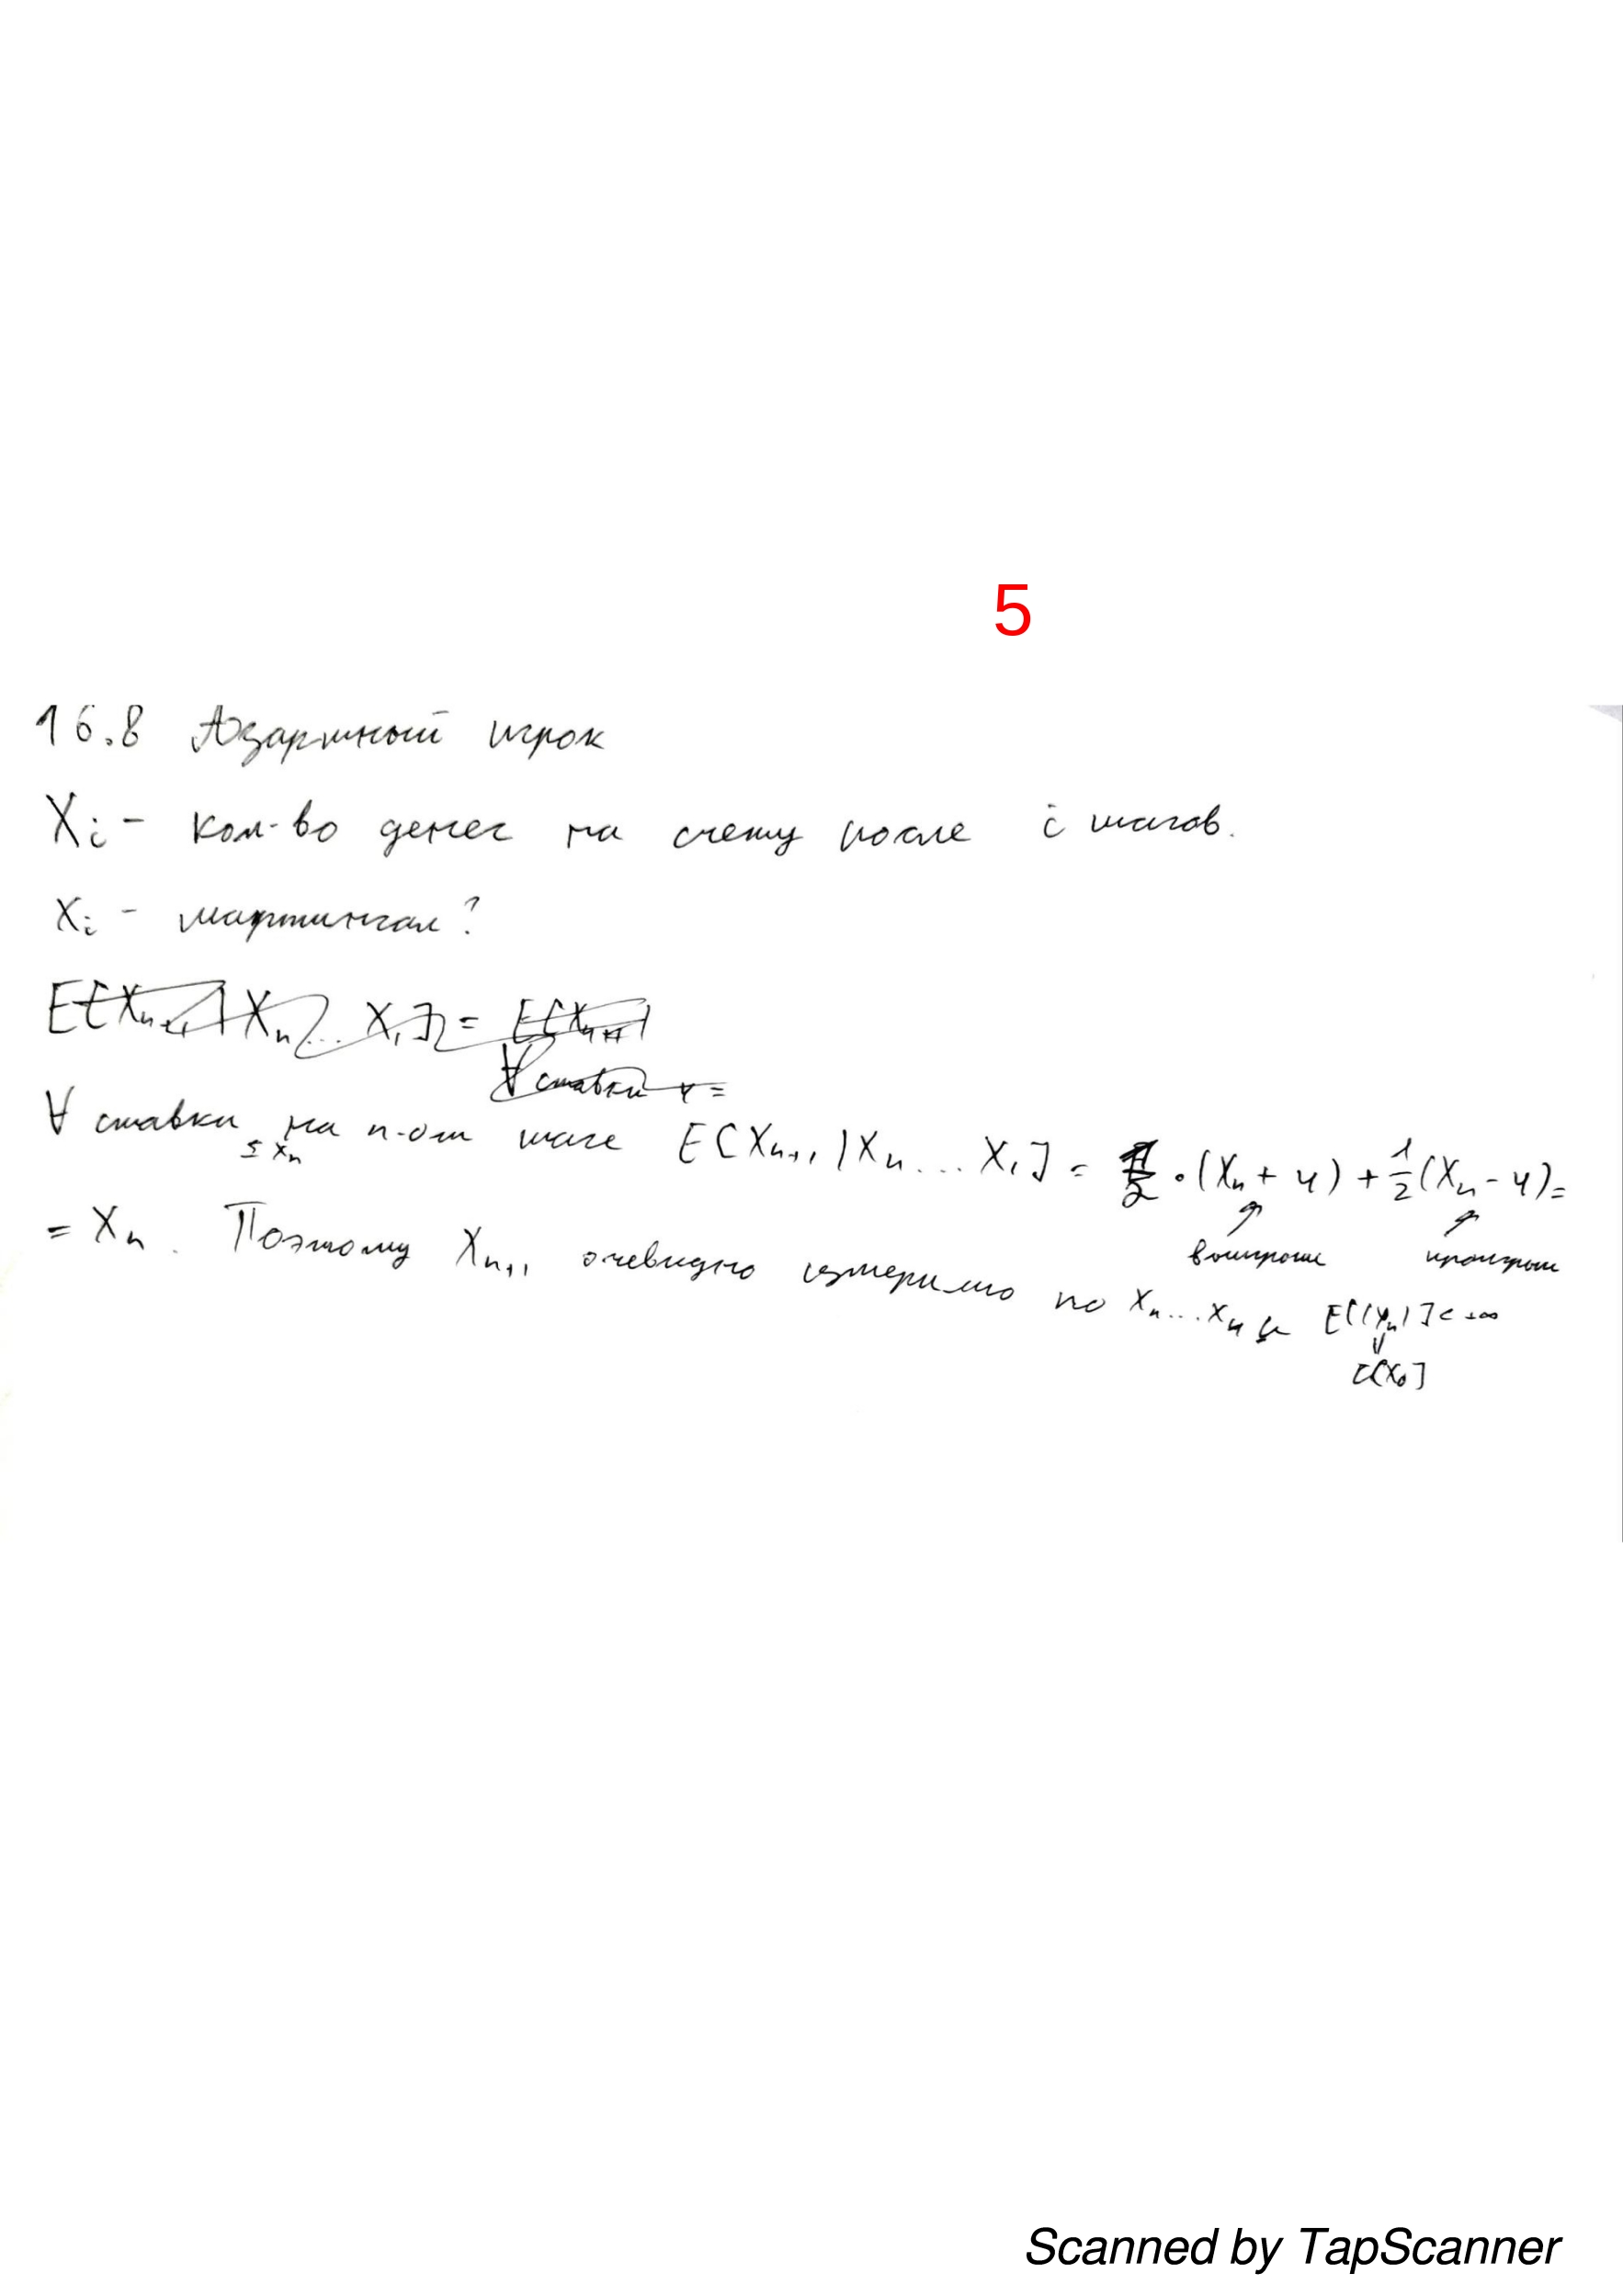 5
16.8 Азартный игрок
Xᵢ - кол-во денег на счету после i шагов.
Xᵢ - мартингал?
E[Xₙ₊₁|Xₙ... X₁] = E[Xₙ₊₁|
∀ ставки ч =
∀ ставки ≤ Xₙ на n-ом шаге E[Xₙ₊₁|Xₙ... X₁] = ½·(Xₙ + ч) + ½(Xₙ - ч) =
выигрыш проигрыш
= Xₙ. Поэтому Xₙ₊₁ очевидно измеримо по Xₙ...Xₙ и E[|Xₙ|] < +∞
E[X₀]
Scanned by TapScanner